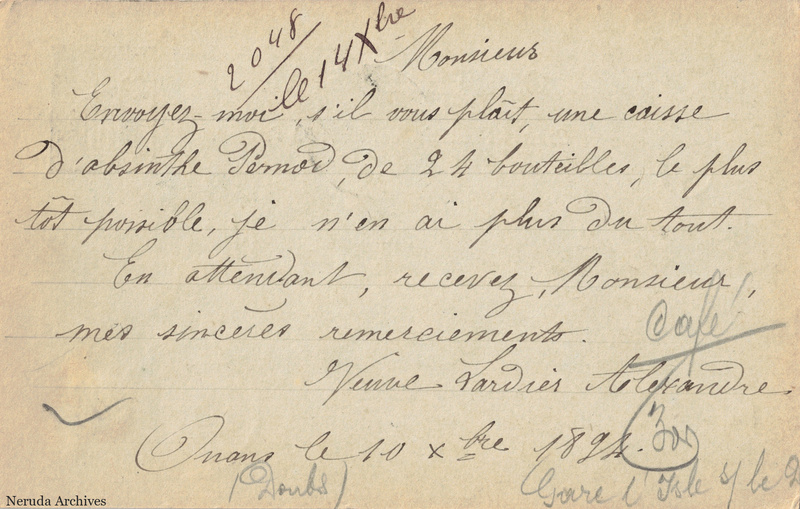 2048
le 14 Xbre
Monsieur
Envoyez-moi, s'il vous plaît, une caisse
d'absinthe Pernod, de 24 bouteilles, le plus
tôt possible, je n'en ai plus du tout.
En attendant, recevez, Monsieur,
mes sincères remerciements.
Café
Veuve Lardier Alexandre
Onans le 10 xbre 1894.
(Doubs)
Gare l'Isle s/ le D
Neruda Archives